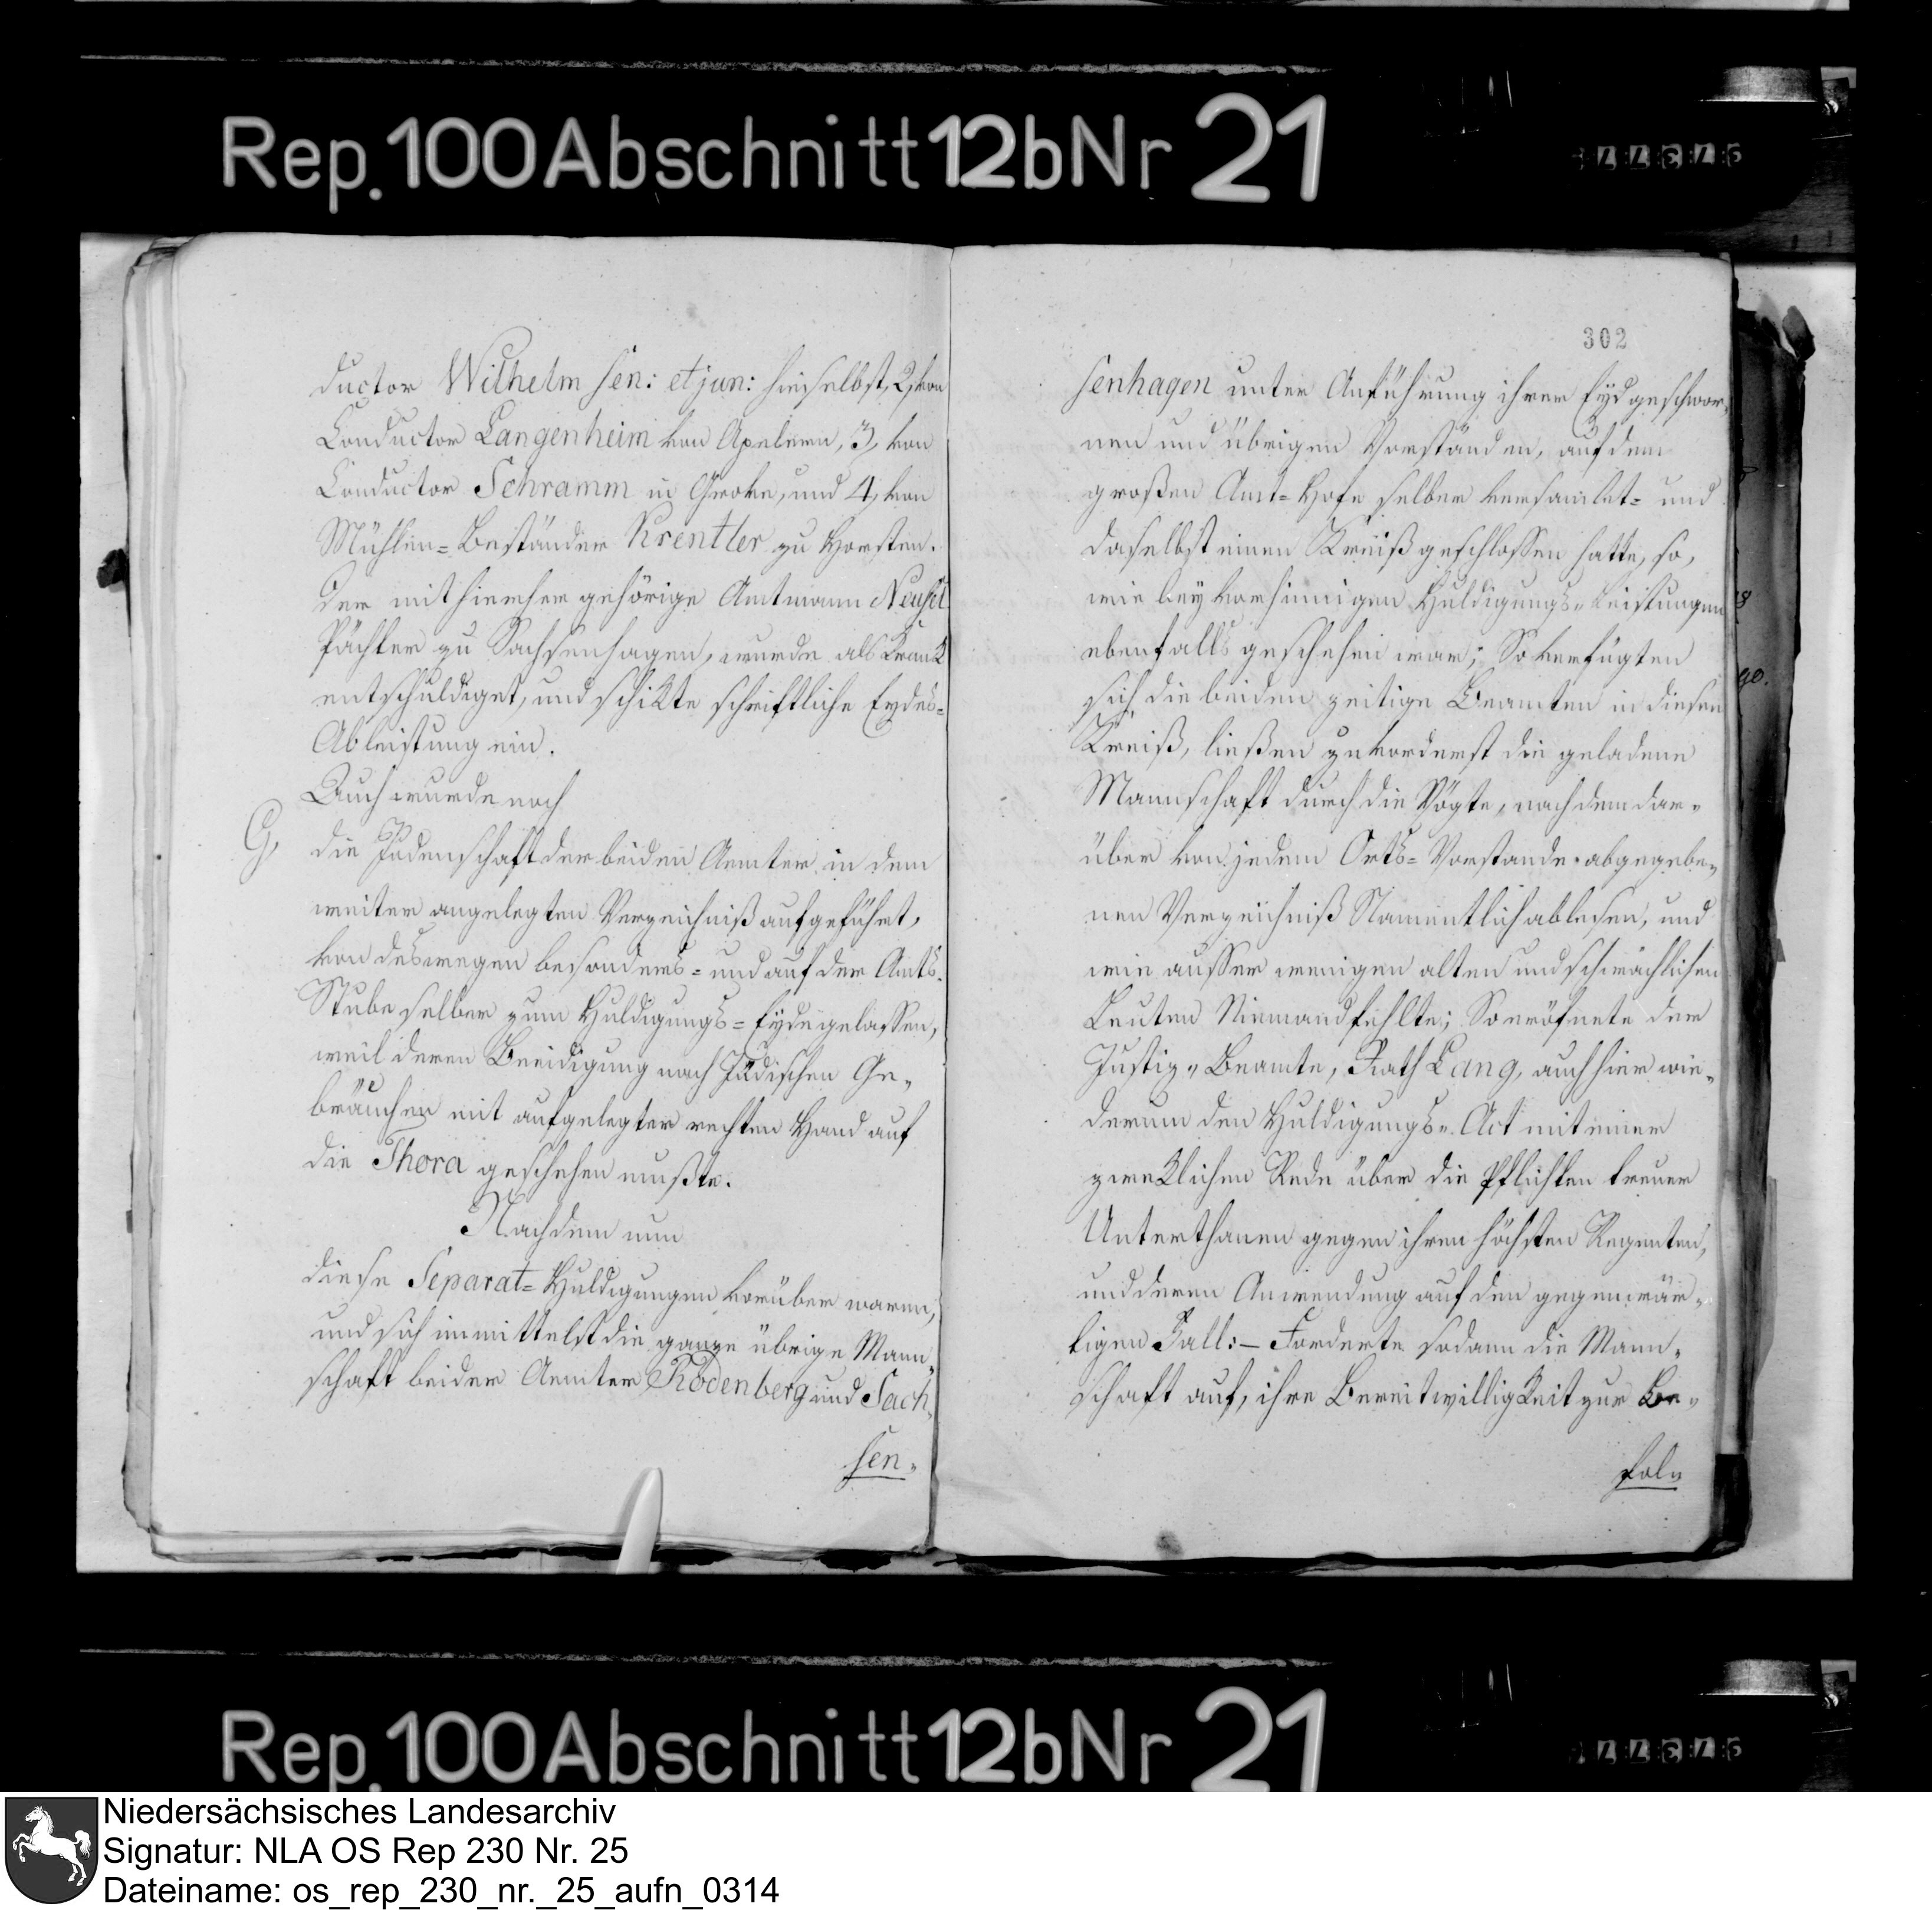 Rep. 100 Abschnitt 12b Nr 21
ductor Wilhelm sen: et jun: hieselbst, 2, von
Conductor Langenheim von Apelern, 3, von
Conductor Schramm in Grove, und 4, von
Mühlen=Beständer Krentler zu Horsten.
Der mit hierher gehörige Amtmann
Pächter zu Sachsenhagen, wurde als krank
entschuldiget, und schikte schriftliche Eydes=
Ableistung ein.
Auch wurde noch
G, die Judenschaft der beiden Aemter in dem
weiter angelegten Verzeichniß aufgeführt,
von deswegen besonders= und auf der Amts=
Stube selber zum Huldigungs=Eyde gelassen,
weil deren Beeidigung nach Jüdischen Ge=
bräuchen mit aufgelegter rechten Hand auf
die Thora geschehen mußte.
Nachdem nun
diese Separat=Huldigungen vorüber waren,
und sich immittelst die ganze übrige Mann=
schaft beider Aemter Rodenberg und Sach=
sen=
302
senhagen unter Anführung ihrer Eydgeschwor=
nen und übrigen Vorständen, auf dem
großen Amt=Hofe selber versamlet= und
daselbst einen Kreiß geschlossen hatte, so,
wie bey vorhinnigen Huldigungs=Leistungen
ebenfalls geschehen war; So verfügten
sich die beiden zeitige Beamten in diesen
Kreiß, ließen zuvorderst die geladene
Mannschaft durch die Vögte, nach dem dar=
über von jedem Orts=Vorstande abgegebe=
nen Verzeichniß Namentlich ablesen, und
wie ausser wenigen alten und schwächlichen
Leuten Niemand fehlte; So eröfnete der
Justiz=Beamte, Rath Lang, auch hier wie=
derum den Huldigungs=Act mit einer
zweklichen Rede über die Pflichten treuer
Unterthanen gegen ihren höchsten Regenten,
und deren Anwendung auf den gegenwär=
tigen Fall: – Forderte sodann die Mann=
schaft auf, ihre Bereitwilligkeit zur Be=
fol=
Rep. 100 Abschnitt 12b Nr 21
Niedersächsisches Landesarchiv
Signatur: NLA OS Rep 230 Nr. 25
Dateiname: os_rep_230_nr._25_aufn_0314